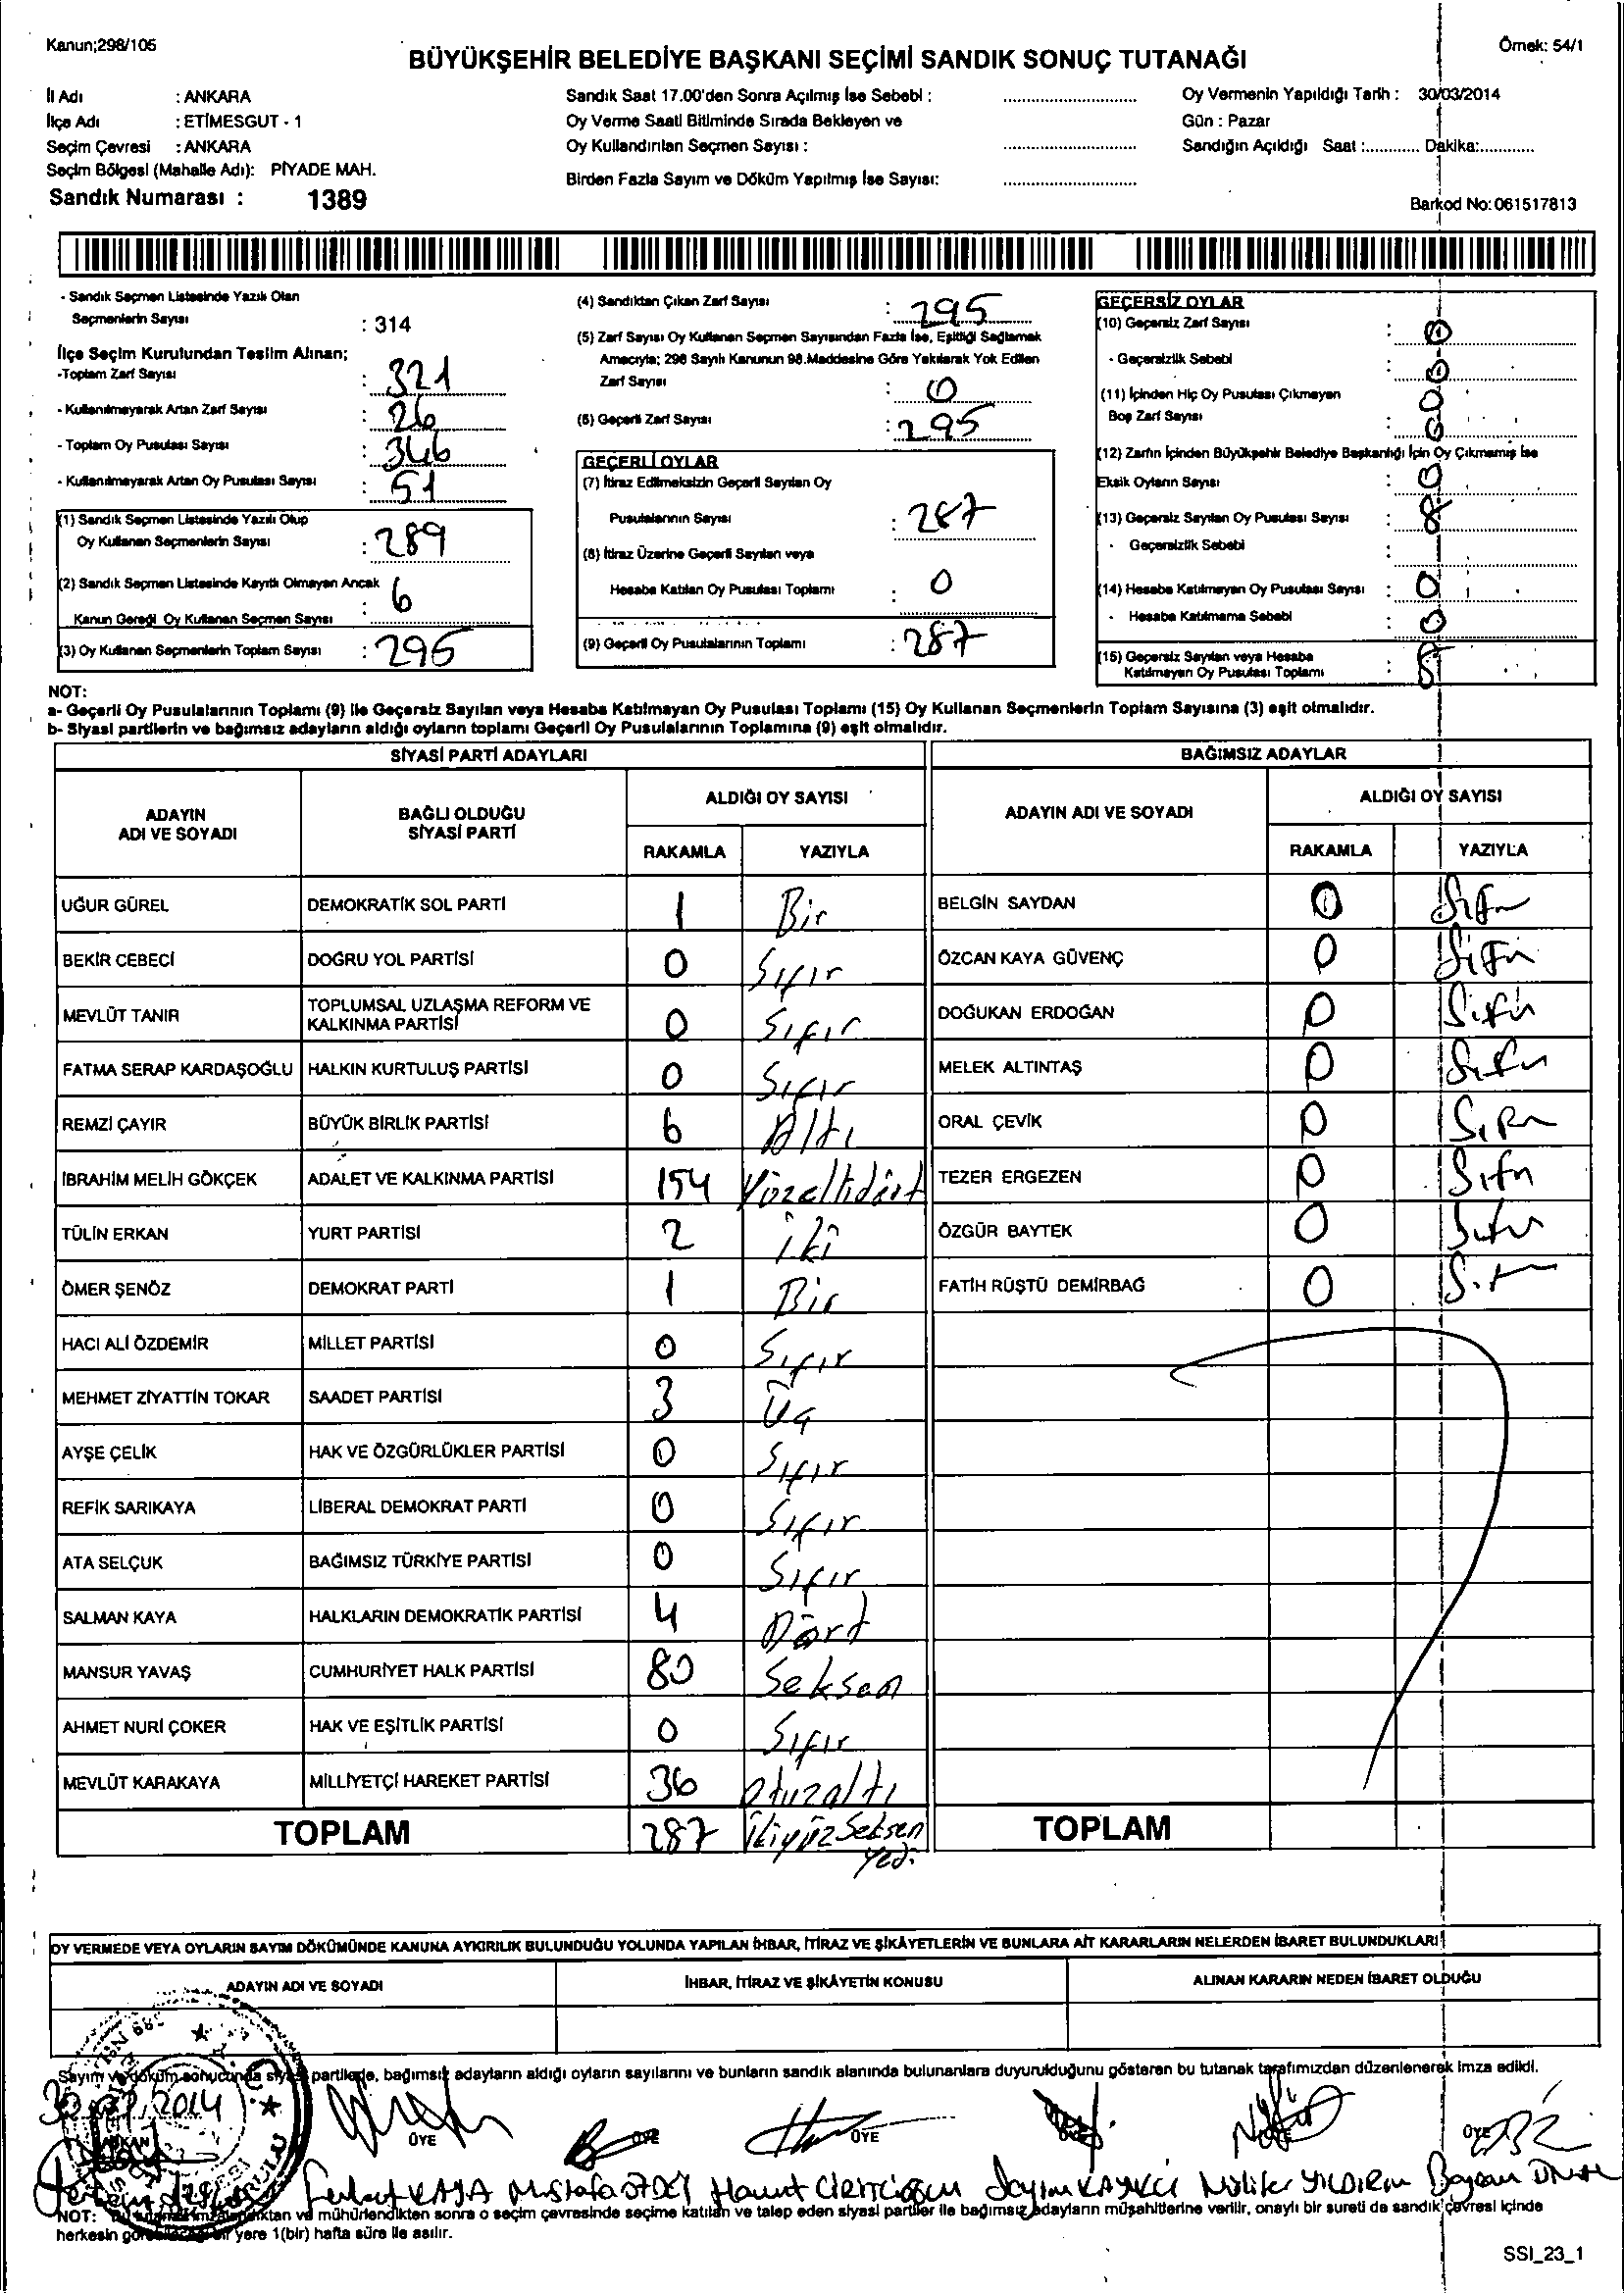 Kanun;298/105
BÜYÜKŞEHİR BELEDİYE BAŞKANI SEÇİMİ SANDIK SONUÇ TUTANAĞI
Örnek: 54/1
İl Adı : ANKARA
İlçe Adı : ETİMESGUT - 1
Seçim Çevresi : ANKARA
Seçim Bölgesi (Mahalle Adı): PİYADE MAH.
Sandık Numarası : 1389
Sandık Saat 17.00'den Sonra Açılmış İse Sebebi :
Oy Verme Saati Bitiminde Sırada Bekleyen ve
Oy Kullandırılan Seçmen Sayısı :
Birden Fazla Sayım ve Döküm Yapılmış İse Sayısı:
Oy Vermenin Yapıldığı Tarih : 30/03/2014
Gün : Pazar
Sandığın Açıldığı Saat :............ Dakika:............
Barkod No:061517813
- Sandık Seçmen Listesinde Yazılı Olan
Seçmenlerin Sayısı : 314
İlçe Seçim Kurulundan Teslim Alınan;
-Toplam Zarf Sayısı : 321
- Kullanılmayarak Artan Zarf Sayısı : 26
- Toplam Oy Pusulası Sayısı : 346
- Kullanılmayarak Artan Oy Pusulası Sayısı : 51
(1) Sandık Seçmen Listesinde Yazılı Olup
Oy Kullanan Seçmenlerin Sayısı : 289
(2) Sandık Seçmen Listesinde Kayıtlı Olmayan Ancak
Kanun Gereği Oy Kullanan Seçmen Sayısı : 6
(3) Oy Kullanan Seçmenlerin Toplam Sayısı : 295
(4) Sandıktan Çıkan Zarf Sayısı : 295
(5) Zarf Sayısı Oy Kullanan Seçmen Sayısından Fazla İse, Eşitliği Sağlamak
Amacıyla; 298 Sayılı Kanunun 98.Maddesine Göre Yakılarak Yok Edilen
Zarf Sayısı : 0
(6) Geçerli Zarf Sayısı : 295
GEÇERLİ OYLAR
(7) İtiraz Edilmeksizin Geçerli Sayılan Oy
Pusulalarının Sayısı : 287
(8) İtiraz Üzerine Geçerli Sayılan veya
Hesaba Katılan Oy Pusulası Toplamı : 0
(9) Geçerli Oy Pusulalarının Toplamı : 287
GEÇERSİZ OYLAR
(10) Geçersiz Zarf Sayısı : 0
- Geçersizlik Sebebi : 0
(11) İçinden Hiç Oy Pusulası Çıkmayan 0
Boş Zarf Sayısı : 0
(12) Zarfın İçinden Büyükşehir Belediye Başkanlığı İçin Oy Çıkmamış İse
Eksik Oyların Sayısı : 0
(13) Geçersiz Sayılan Oy Pusulası Sayısı : 8
- Geçersizlik Sebebi :
(14) Hesaba Katılmayan Oy Pusulası Sayısı : 0
- Hesaba Katılmama Sebebi : 0
(15) Geçersiz Sayılan veya Hesaba
Katılmayan Oy Pusulası Toplamı : 8
NOT:
a- Geçerli Oy Pusulalarının Toplamı (9) ile Geçersiz Sayılan veya Hesaba Katılmayan Oy Pusulası Toplamı (15) Oy Kullanan Seçmenlerin Toplam Sayısına (3) eşit olmalıdır.
b- Siyasi partilerin ve bağımsız adayların aldığı oyların toplamı Geçerli Oy Pusulalarının Toplamına (9) eşit olmalıdır.
SİYASİ PARTİ ADAYLARI
ADAYIN ADI VE SOYADI BAĞLI OLDUĞU SİYASİ PARTİ ALDIĞI OY SAYISI
RAKAMLA YAZIYLA
UĞUR GÜREL DEMOKRATİK SOL PARTİ 1 Bir
BEKİR CEBECİ DOĞRU YOL PARTİSİ 0 Sıfır
MEVLÜT TANIR TOPLUMSAL UZLAŞMA REFORM VE KALKINMA PARTİSİ 0 Sıfır
FATMA SERAP KARDAŞOĞLU HALKIN KURTULUŞ PARTİSİ 0 Sıfır
REMZİ ÇAYIR BÜYÜK BİRLİK PARTİSİ 6 Altı
İBRAHİM MELİH GÖKÇEK ADALET VE KALKINMA PARTİSİ 154 Yüzellidört
TÜLİN ERKAN YURT PARTİSİ 2 İki
ÖMER ŞENÖZ DEMOKRAT PARTİ 1 Bir
HACI ALİ ÖZDEMİR MİLLET PARTİSİ 0 Sıfır
MEHMET ZİYATTİN TOKAR SAADET PARTİSİ 3 Üç
AYŞE ÇELİK HAK VE ÖZGÜRLÜKLER PARTİSİ 0 Sıfır
REFİK SARIKAYA LİBERAL DEMOKRAT PARTİ 0 Sıfır
ATA SELÇUK BAĞIMSIZ TÜRKİYE PARTİSİ 0 Sıfır
SALMAN KAYA HALKLARIN DEMOKRATİK PARTİSİ 4 Dört
MANSUR YAVAŞ CUMHURİYET HALK PARTİSİ 80 Seksen
AHMET NURİ ÇOKER HAK VE EŞİTLİK PARTİSİ 0 Sıfır
MEVLÜT KARAKAYA MİLLİYETÇİ HAREKET PARTİSİ 36 otuzaltı
TOPLAM 287 İkiyüzSeksen yedi
BAĞIMSIZ ADAYLAR
ADAYIN ADI VE SOYADI ALDIĞI OY SAYISI
RAKAMLA YAZIYLA
BELGİN SAYDAN 0 Sıfır
ÖZCAN KAYA GÜVENÇ 0 Sıfır
DOĞUKAN ERDOĞAN 0 Sıfır
MELEK ALTINTAŞ 0 Sıfır
ORAL ÇEVİK 0 Sıfır
TEZER ERGEZEN 0 Sıfır
ÖZGÜR BAYTEK 0 Sıfır
FATİH RÜŞTÜ DEMİRBAĞ 0 Sıfır
TOPLAM
OY VERMEDE VEYA OYLARIN SAYIM DÖKÜMÜNDE KANUNA AYKIRILIK BULUNDUĞU YOLUNDA YAPILAN İHBAR, İTİRAZ VE ŞİKÂYETLERİN VE BUNLARA AİT KARARLARIN NELERDEN İBARET BULUNDUKLARI
ADAYIN ADI VE SOYADI İHBAR, İTİRAZ VE ŞİKÂYETİN KONUSU ALINAN KARARIN NEDEN İBARET OLDUĞU
Sayım ve döküm sonucunda siyasi partilerle, bağımsız adayların aldığı oyların sayılarını ve bunların sandık alanında bulunanlara duyurulduğunu gösteren bu tutanak tarafımızdan düzenlenerek imza edildi.
2014
ÜYE ÜYE ÜYE ÜYE
KAYA Mustafa Sayım KAYKCI Nilüfer YILDIRIM Bayram ÜNAL
NOT: mühürlendikten sonra o seçim çevresinde seçime katılan ve talep eden siyasi partiler ile bağımsız adayların müşahitlerine verilir, onaylı bir sureti de sandık çevresi içinde
herkesin yere 1(bir) hafta süre ile asılır.
SSI_23_1